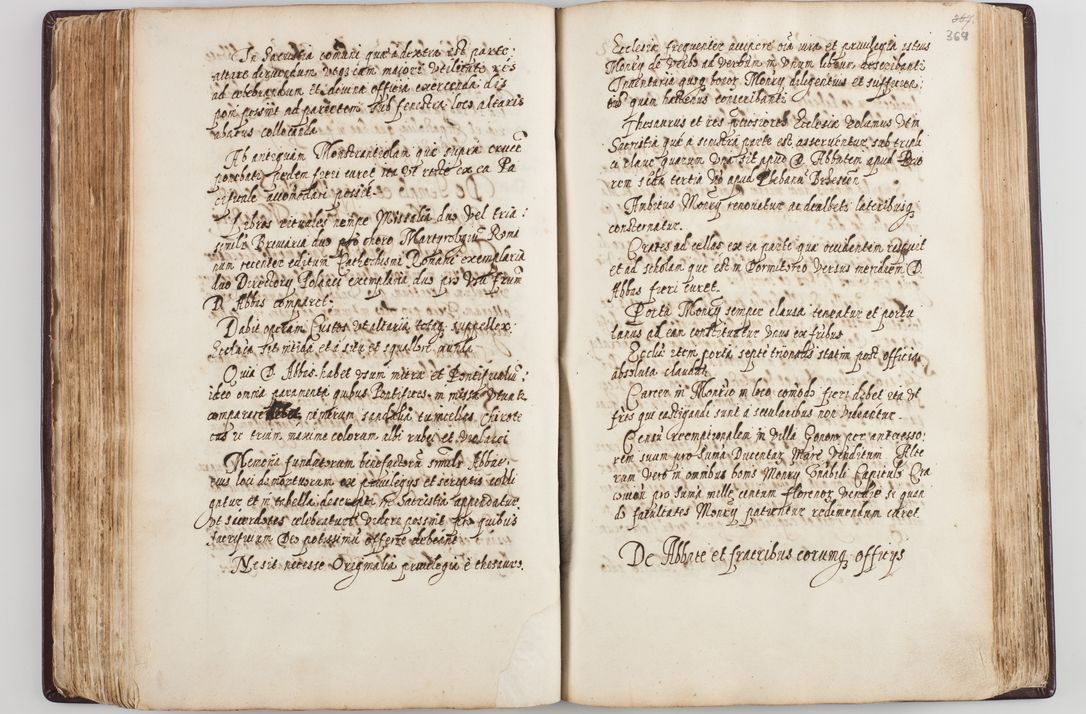 In Sacristia comuni quæ a dextra est parte:
altare diruendum usq̃ cam maiori utilitate res
ad celebrandum et divina officia exercenda di
poni possint ad parietem sub fenestra loco altaris
abacus collocanda
Ab antiquam Monstrantiolam quæ supra crucẽ
fieri curet ita ut recte ex ea Pa
cificale accomodari possit.
Libros rituales nempe Missalia duo vel tria:
similr Breviaria duo pro choro Martyrologiũ Roma
num recenter editum Cathechismi Romani exemplaria
duo Directory Polanci exemplaria duo pro usu frum
D. Abbas comparet.
Dabit operam Custos ut altaria totaq̃ suppellex:
Ecclesiæ sit nitida et a situ et squallore munda
Quia D. Abbas habet usum mitræ et Pontificaliũ:
ideo omnia paramenta quibus Pontifices in missa utunt̃
comparare debet nimirum sandalia tunicellas Chirote
cas ac trium maxime colorum albi rubei et violacei
Memoria fundatorum benefactorũ similr Abba:
tus loci demortuorum ex privilegys et scriptis colli
gatur et in tabella descripta in Sacristia appendatur
ut sacerdotes celebraturi videre possint pro quibus
sacrificium Deo potissimũ offerre debeant
Ne sit necesse Originalia privilegia è thesauro
369
Ecclesiæ frequenter accipere oĩa iura et privilegia istius
Monry de verbo ad verbum in unum librum describant̃
Inventaria quoq̃ bonor Monry diligentius et sufficien:
tius quàm hactenus conscribant̃
Thesaurus et res preciosiores Ecclesiæ volumus ut in
Sacristia quæ a sinistra parte est asserventur sub tripli
ci clave quarum una sit apud D. Abbatem apud Prio
rem secunda tertia vo apud Plebanũ
Ambitus Monry renovetur ac dealbet̃ lateribusq̃
consternatur.
Crates ad cellas ex ea parte quæ occidentem respicit
et ad scholam que est in Dormitorio versus meridiem D.
Abbas fieri curet.
Porta Monry semper clausa teneatur et portu
lanus ad eam constituatur unus ex fribus
Ecclæ item porta septentrionalis statim post officia
absoluta claudat̃
Carcer in Monrio in loco comodo fieri debet ita ut
frēs qui castigandi sunt a secularibus non videantur.
Censũ reemptionalem in villa per antecesso:
rem suum pro suma Ducentar Marc venditum. Alte
rum vero in omnibus bonis Monry Vnbili Capitulo Cra
coviēn pro suma mille centum florenor vendite si quan
do facultates Monry patiuntur redimendum curet
De Abbate et fratribus eorumq̃ officys